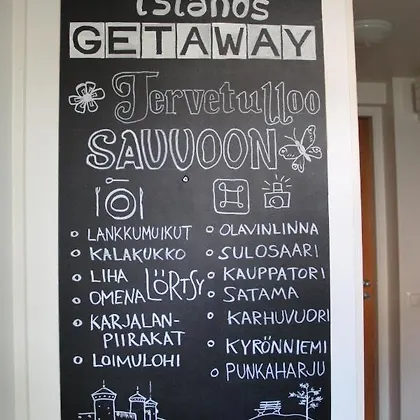 islands
GETAWAY
Tervetulloo
SAVVOON
LANKKUMUIKUT
KALAKUKKO
LIHA
OMENA
LÖRTSY
KARJALAN-
PIIRAKAT
LOIMULOHI
OLAVINLINNA
SULOSAARI
KAUPPATORI
SATAMA
KARHUVUORI
KYRÖNNIEMI
PUNKAHARJU